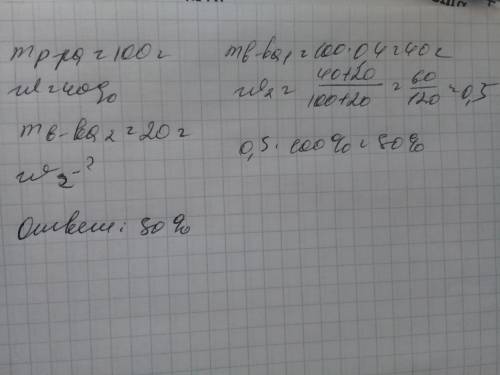 m р-ра = 100 г
w = 40%
m в-ва₂ = 20 г
w₂ - ?
Ответ: 50%
m в-ва₁ = 100 · 0,4 = 40 г
w₂ = 40+20 / 100+20 = 60 / 120 = 0,5
0,5 · 100% = 50%